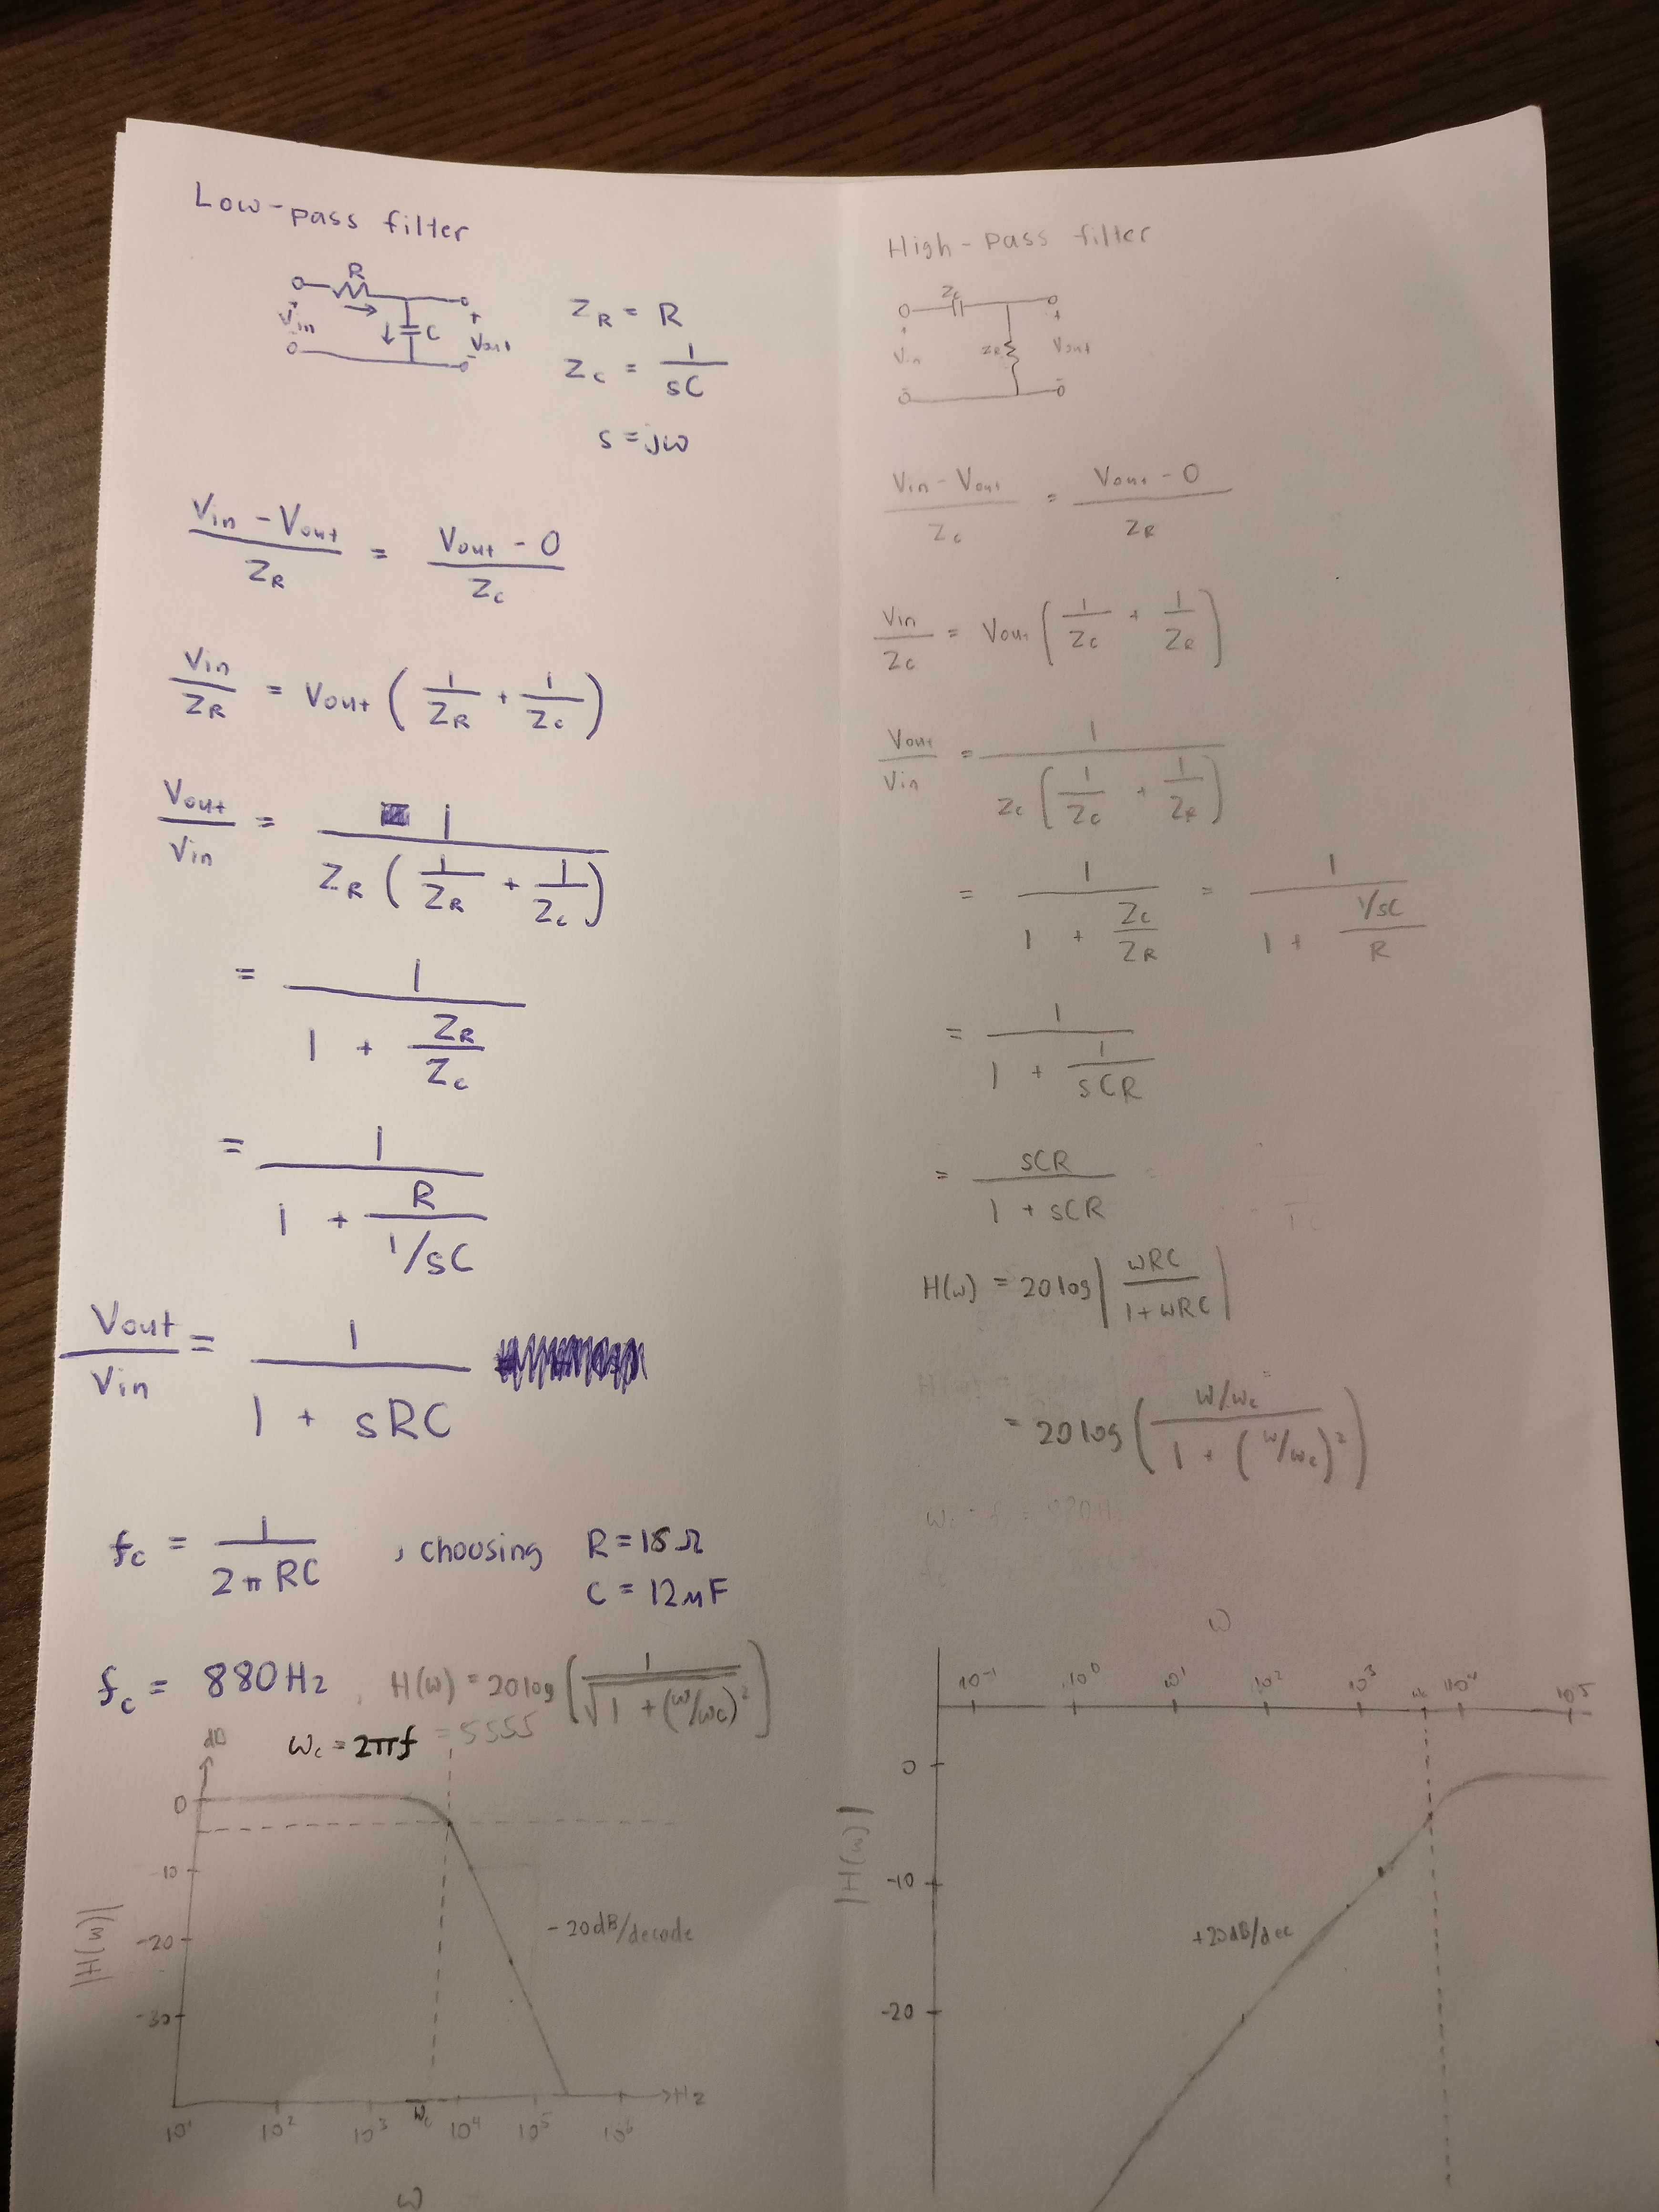 Low-pass filter
R
Vin
C
+
Vout
-
Z_R = R
Z_C = 1/sC
s = jω
(Vin - Vout)/Z_R = (Vout - 0)/Z_C
Vin/Z_R = Vout (1/Z_R + 1/Z_C)
Vout/Vin = 1/(Z_R (1/Z_R + 1/Z_C))
= 1/(1 + Z_R/Z_C)
= 1/(1 + R/(1/sC))
Vout/Vin = 1/(1 + sRC)
fc = 1/(2πRC) , choosing R = 15Ω
C = 12μF
fc = 880Hz , H(ω) = 20log [1/√(1 + (ω/ωc)²)]
ωc = 2πf = 5555
dB
0
-10
-20
-30
|H(ω)|
-20dB/decade
10¹ 10² 10³ ωc 10⁴ 10⁵ 10⁶ Hz
ω
High-pass filter
Zc
+
Vin
-
ZR
+
Vout
-
(Vin - Vout)/Z_C = (Vout - 0)/Z_R
Vin/Z_C = Vout [1/Z_C + 1/Z_R]
Vout/Vin = 1/(Z_C [1/Z_C + 1/Z_R])
= 1/(1 + Z_C/Z_R) = 1/(1 + (1/sC)/R)
= 1/(1 + 1/sCR)
= sCR/(1 + sCR)
H(ω) = 20log |ωRC/(1+ωRC)|
= 20log ((ω/ωc)/(1 + (ω/ωc)²))
ω
10⁻¹ 10⁰ 10¹ 10² 10³ 10⁴ 10⁵
0
-10
-20
|H(ω)|
+20dB/dec